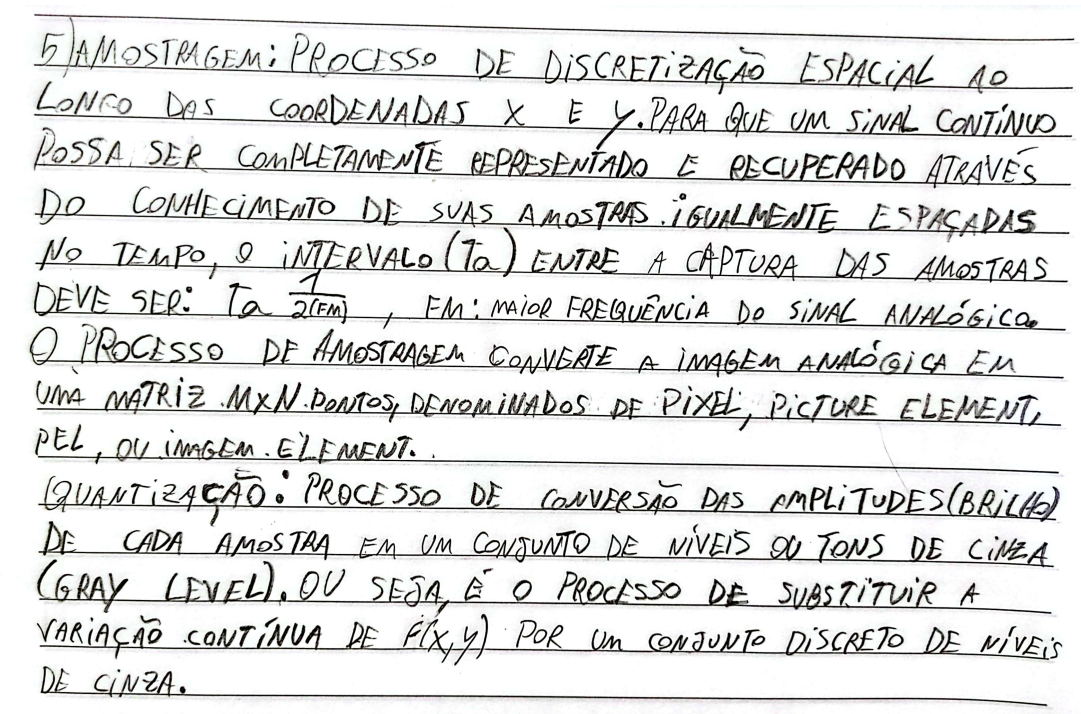 5) AMOSTRAGEM: PROCESSO DE DISCRETIZAÇÃO ESPACIAL AO
LONGO DAS COORDENADAS X E Y. PARA QUE UM SINAL CONTÍNUO
POSSA SER COMPLETAMENTE REPRESENTADO E RECUPERADO ATRAVÉS
DO CONHECIMENTO DE SUAS AMOSTRAS IGUALMENTE ESPAÇADAS
NO TEMPO, O INTERVALO (Ta) ENTRE A CAPTURA DAS AMOSTRAS
DEVE SER: Ta 1/2(FM) , FM: MAIOR FREQUÊNCIA DO SINAL ANALÓGICO.
O PROCESSO DE AMOSTRAGEM CONVERTE A IMAGEM ANALÓGICA EM
UMA MATRIZ MXN PONTOS, DENOMINADOS DE PIXEL, PICTURE ELEMENT,
PEL, OU IMAGEM ELEMENT.
QUANTIZAÇÃO: PROCESSO DE CONVERSÃO DAS AMPLITUDES (BRILHO)
DE CADA AMOSTRA EM UM CONJUNTO DE NÍVEIS OU TONS DE CINZA
(GRAY LEVEL). OU SEJA, É O PROCESSO DE SUBSTITUIR A
VARIAÇÃO CONTÍNUA DE F(X,Y) POR UM CONJUNTO DISCRETO DE NÍVEIS
DE CINZA.